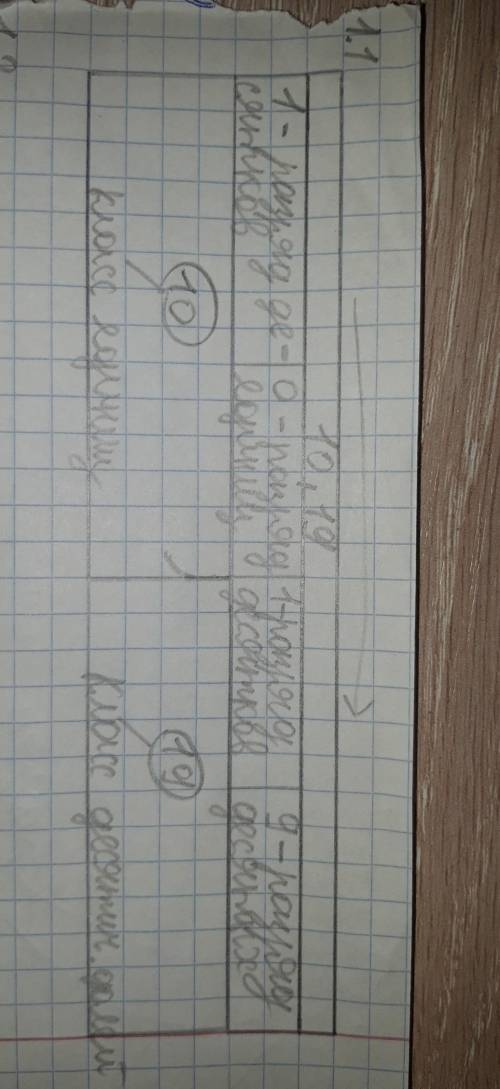 1.1
10,19
1-разряд де- 0-разряд 1-разряд 9-разряд
сятков единиц десятков
10 19
класс единиц класс десятич.